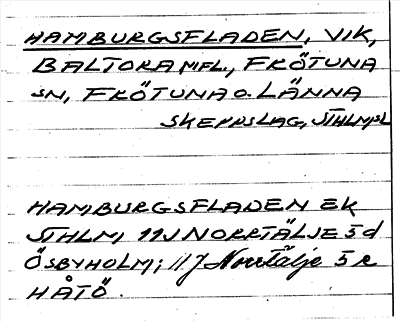 HAMBURGSFLADEN, VIK,
BALTORA MFL., FRÖTUNA
SN, FRÖTUNA O. LÄNNA
SKEPPSLAG, STHLMSL
HAMBURGSFLADEN EK
STHLM, 11J NORRTÄLJE 5d
ÖSBYHOLM; 11J Norrtälje 5c
HÅTÖ.